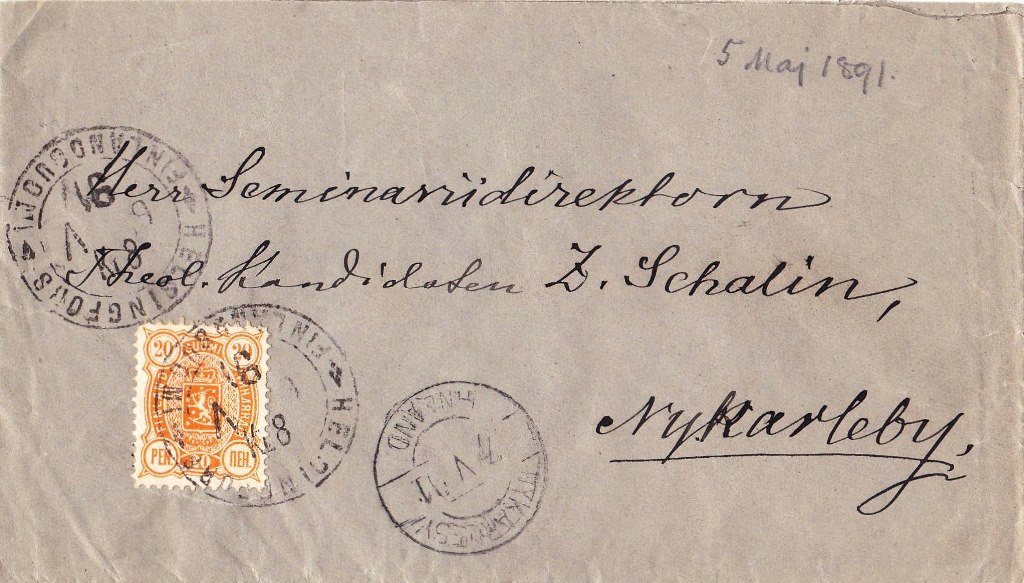 5 Maj 1891.
Herr Seminariidirektorn
Theol. Kandidaten Z. Schalin,
Nykarleby.
FINLAND HELSINGFORS
91
V
20 20
PEN. 20 ПЕН.
FINLAND
HELSINGFORS
91
V
FINLAND
7
V
NYKARLEBY